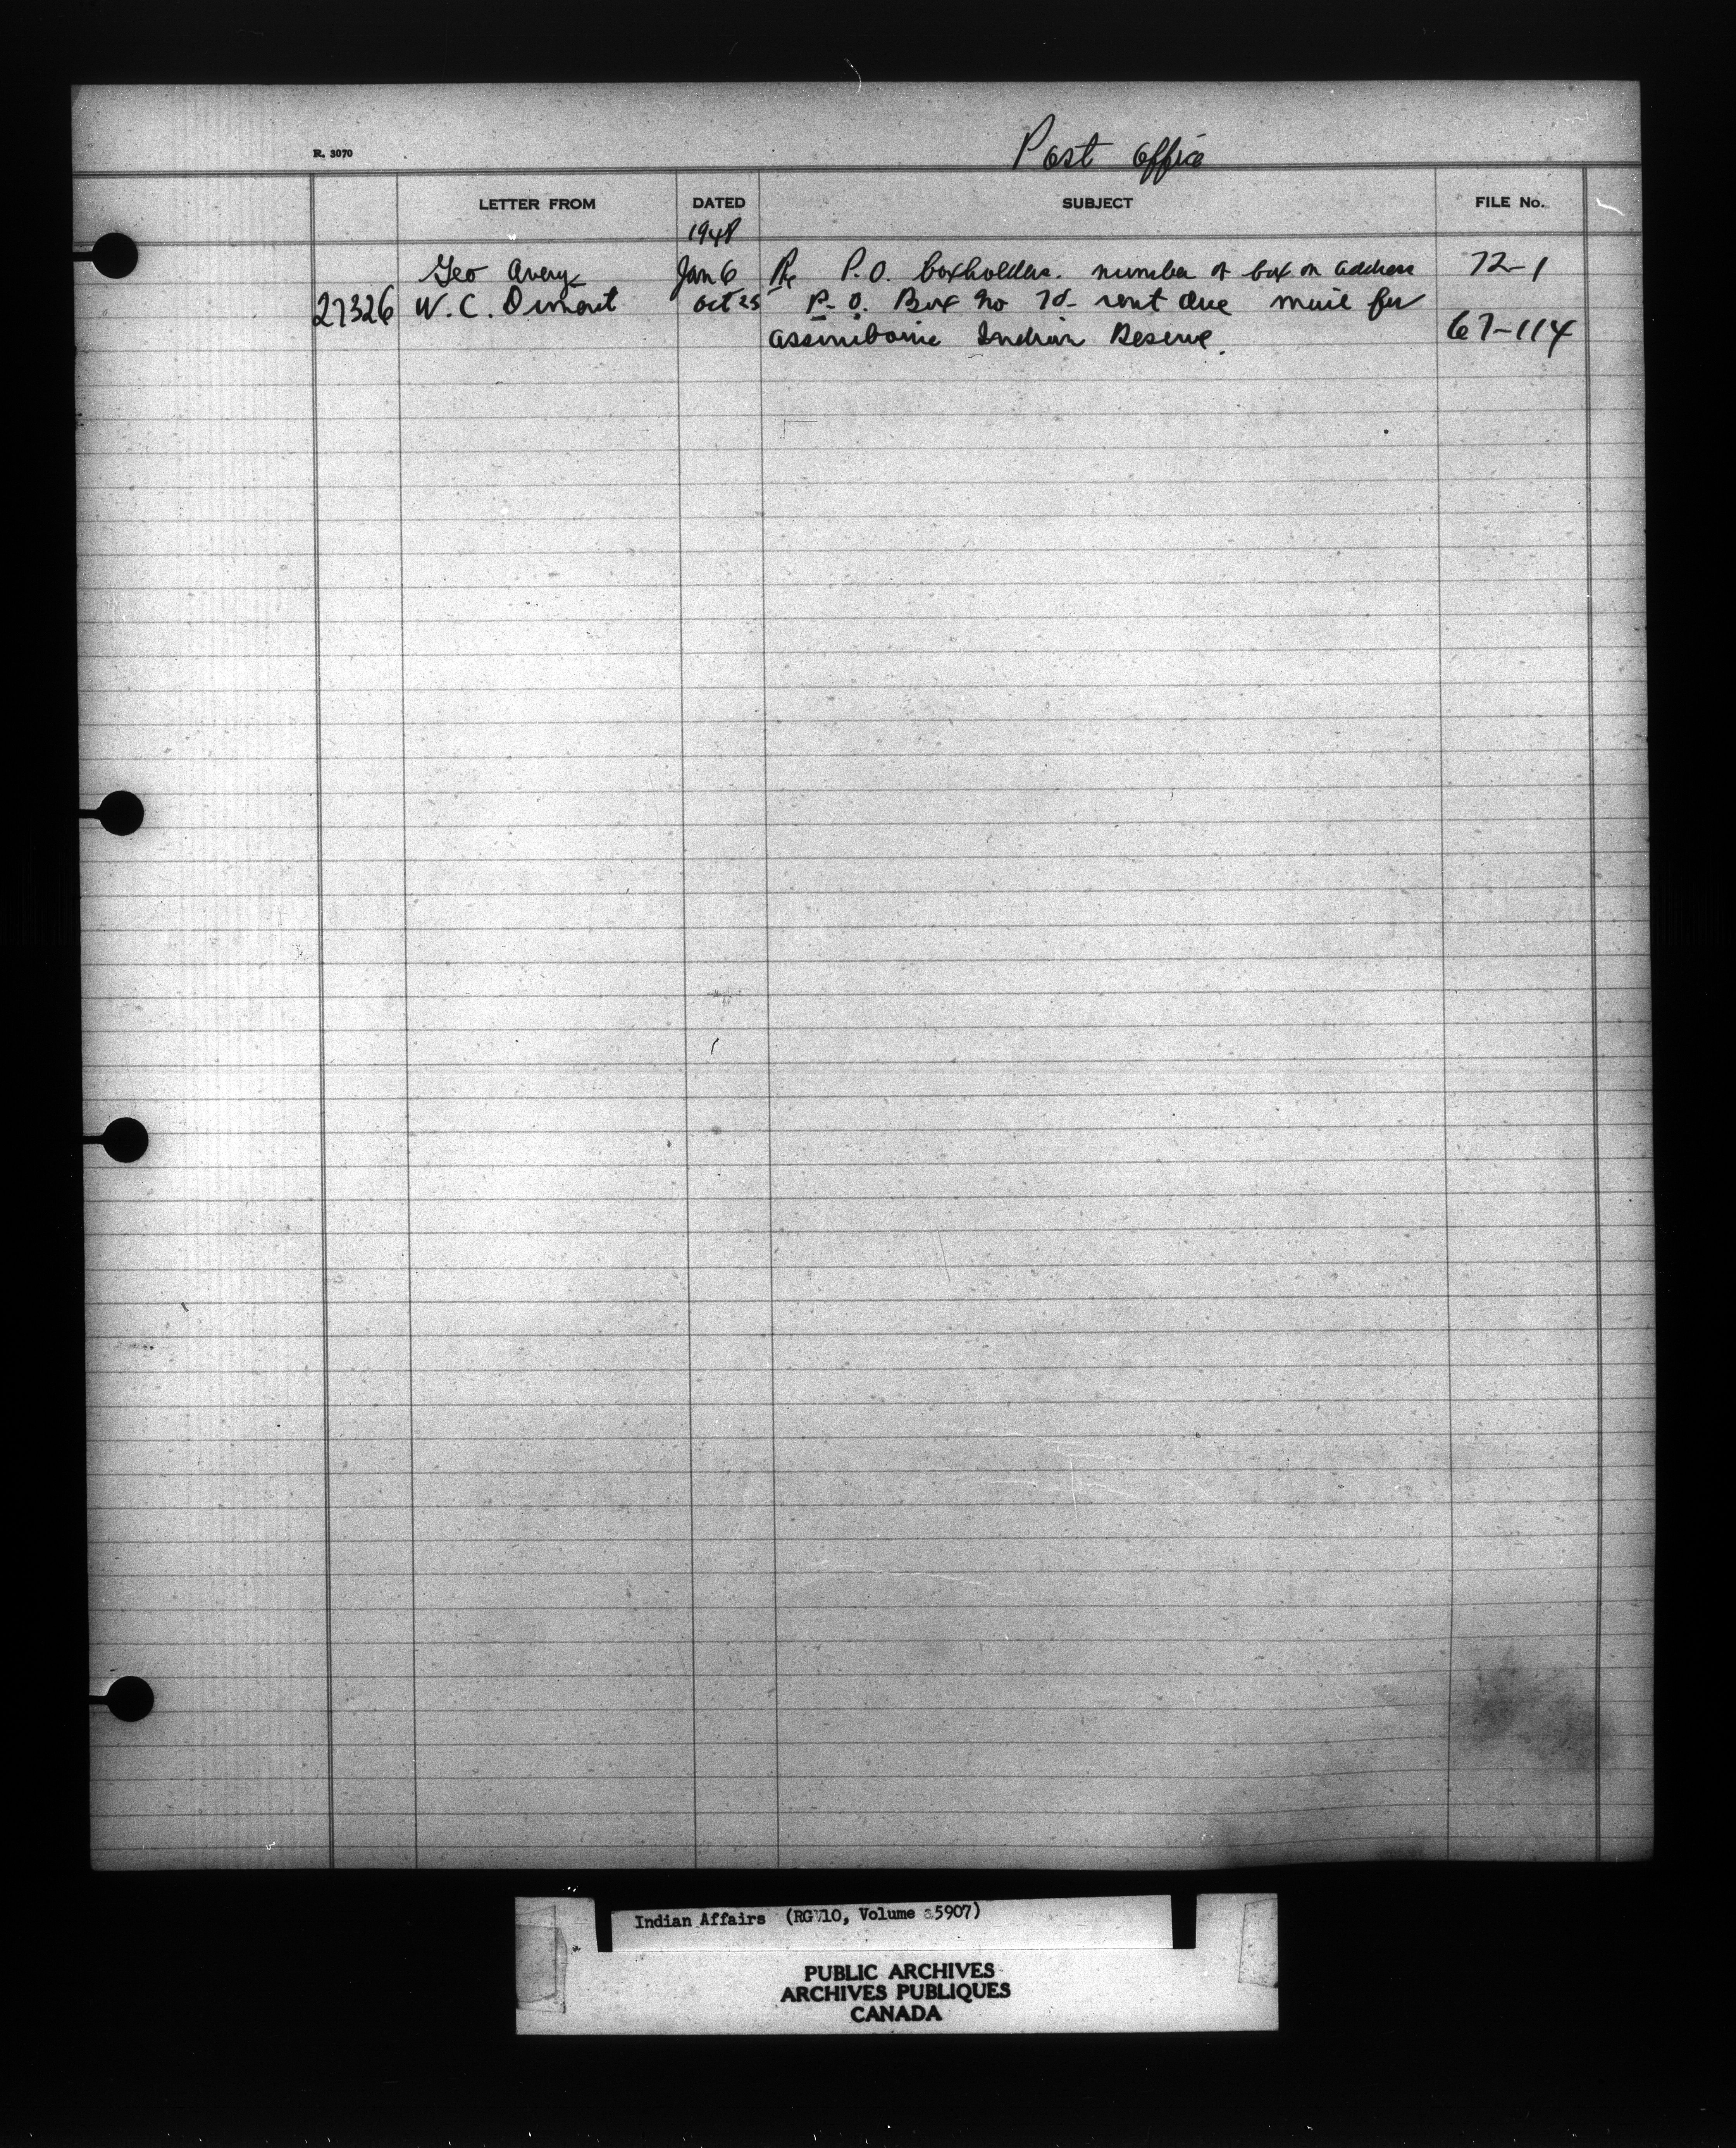 Post Office
R. 3070
LETTER FROM DATED SUBJECT FILE No.
1948
Geo Avery Jan 6 Re P.O. boxholders. number of box on address 72-1
27326 W. C. Dimont Oct 25 P.O. Box No 70- rent due mail for
Assiniboine Indian Reserve. 67-114
Indian Affairs (RG 10, Volume 5907)
PUBLIC ARCHIVES
ARCHIVES PUBLIQUES
CANADA